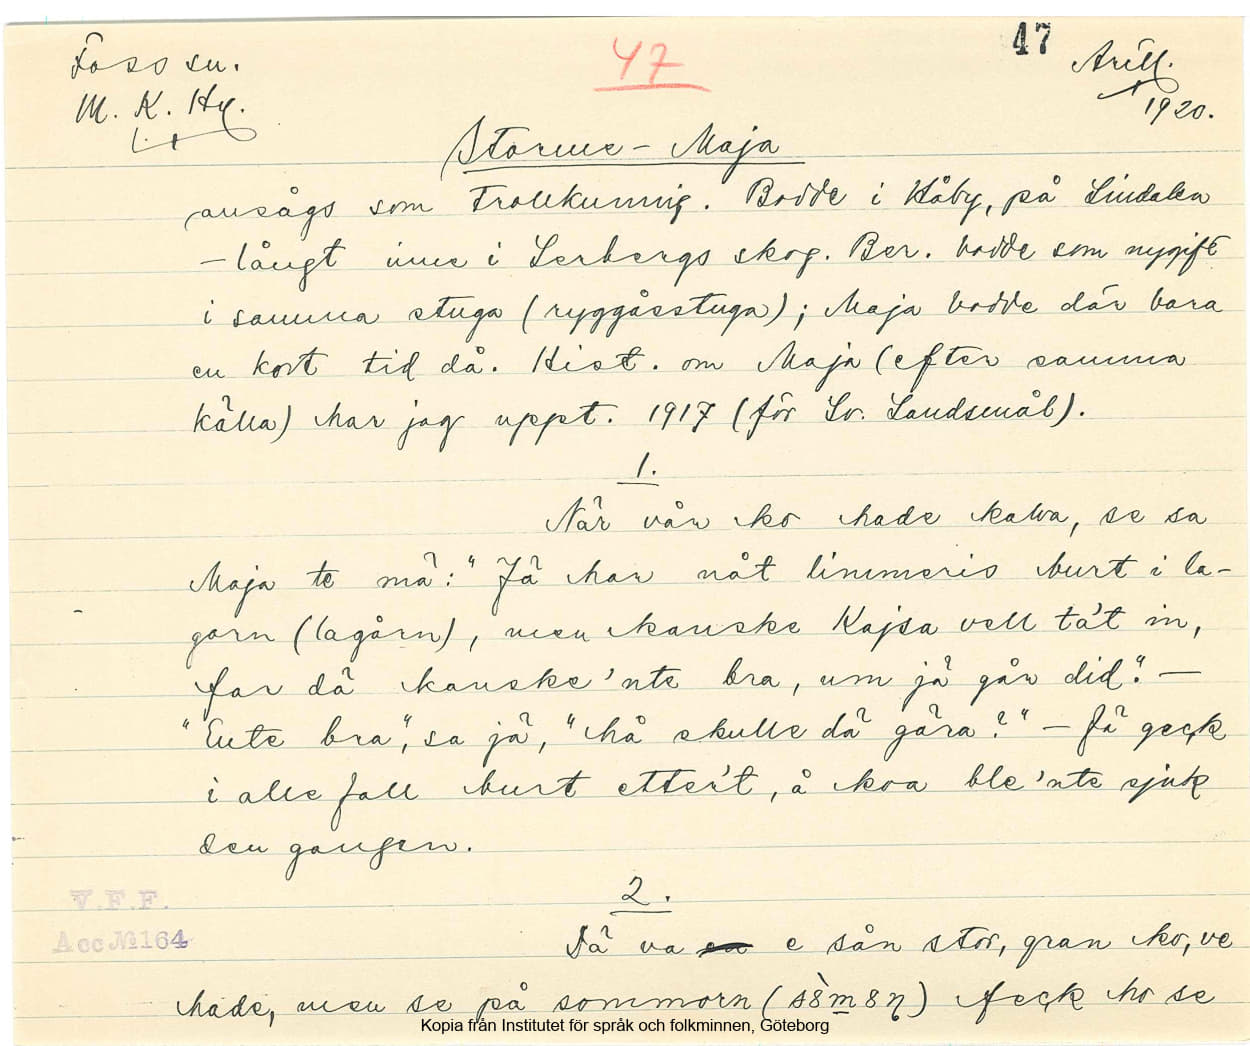 Foss sn.
47
47
Arill.
M. K. Hn.
1920.
Storme-Maja
ansågs som Trollkunnig. Bodde i Håby, på Lindalen
– långt inne i Lerbergs skog. Ber. bodde som nygift
i samma stuga (ryggåsstuga); Maja bodde där bara
en kort tid då. Hist. om Maja (efter samma
källa) har jag uppt. 1917 (för Sv. Landsmål).
1.
När vår ko hade kalva, se sa
Maja te mä: "Jä har nåt limmeris burt i la-
gorn (lagårn), men kanske Kajsa vell ta't in,
far dä kanske 'nte bra, um jä går did." –
"Ente bra", sa jä, "hå skulle dä gära?" – Jä geck
i alle fall burt etter't, å koa ble 'nte sjuk
den gangen.
2.
Dä va e sån stor, gran ko, ve
hade, men se på sommorn (sòmon) feck ho se
V.F.F.
Acc № 164
Kopia från Institutet för språk och folkminnen, Göteborg